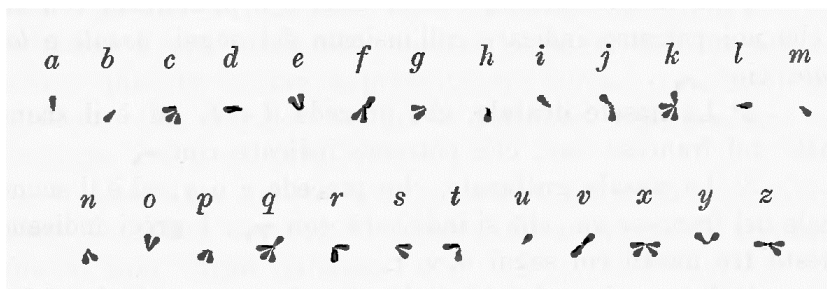 a b c d e f g h i j k l m
n o p q r s t u v x y z